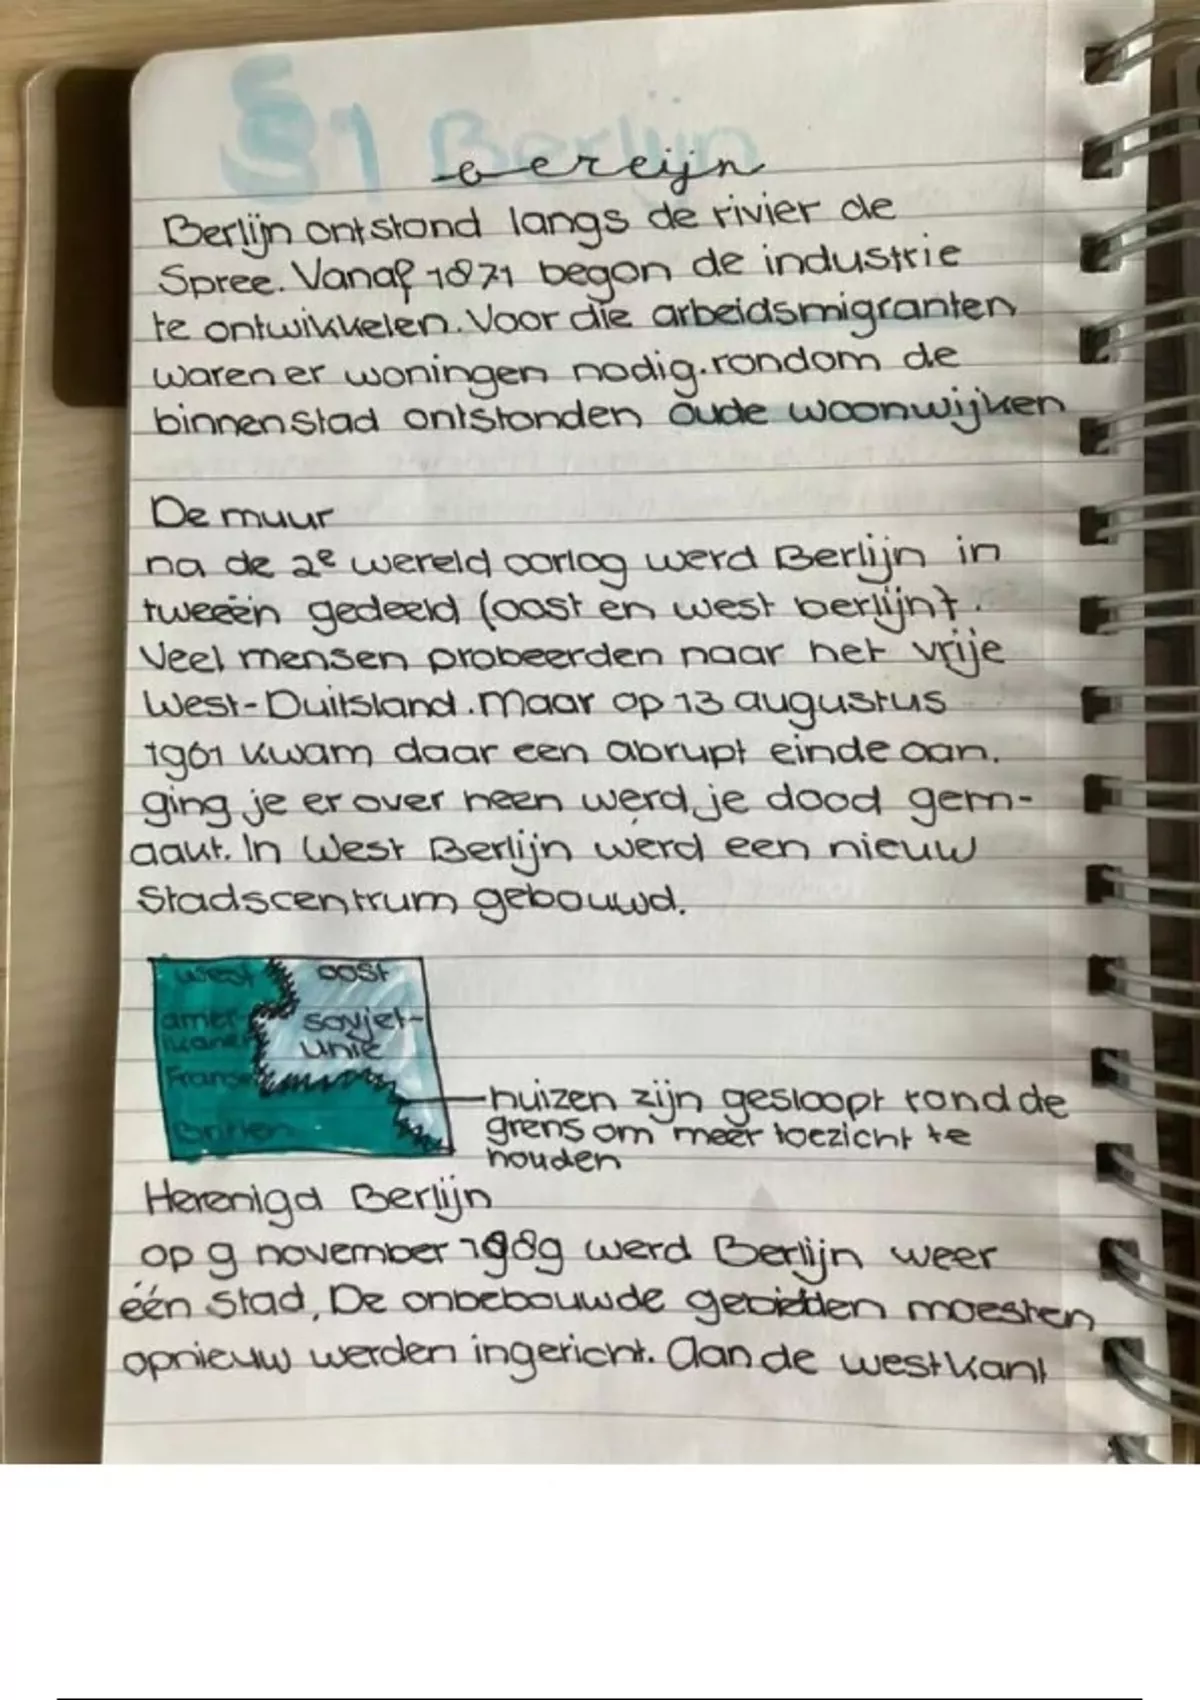 §1 Berlijn
Berlijn ontstond langs de rivier de
Spree. Vanaf 1871 begon de industrie
te ontwikkelen. Voor die arbeidsmigranten
waren er woningen nodig. rondom de
binnenstad ontstonden oude woonwijken
De muur
na de 2e wereld oorlog werd Berlijn in
tweeën gedeeld (oost en west berlijn).
Veel mensen probeerden naar het vrije
West-Duitsland. Maar op 13 augustus
1961 kwam daar een abrupt einde aan.
ging je er over heen werd je dood gem-
aakt. In West Berlijn werd een nieuw
Stadscentrum gebouwd.
west oost
amer- sovjet-
ikanen unie
Franse
Britten
huizen zijn gesloopt rond de
grens om meer toezicht te
houden
Herenigd Berlijn
op 9 november 1989 werd Berlijn weer
één stad. De onbebouwde gebieden moesten
opnieuw werden ingericht. Aan de westkant